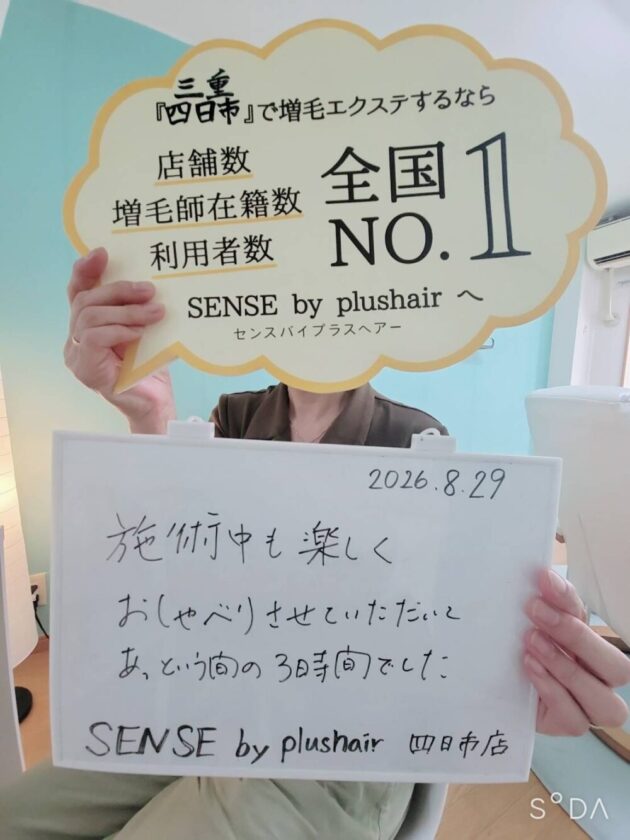 三重
『四日市』で増毛エクステするなら
店舗数
増毛師在籍数
利用者数
全国
NO.1
SENSE by plushair へ
センスバイプラスヘアー
2026.8.29
施術中も楽しく
おしゃべりさせていただいて
あっという間の3時間でした
SENSE by plushair 四日市店
SODA